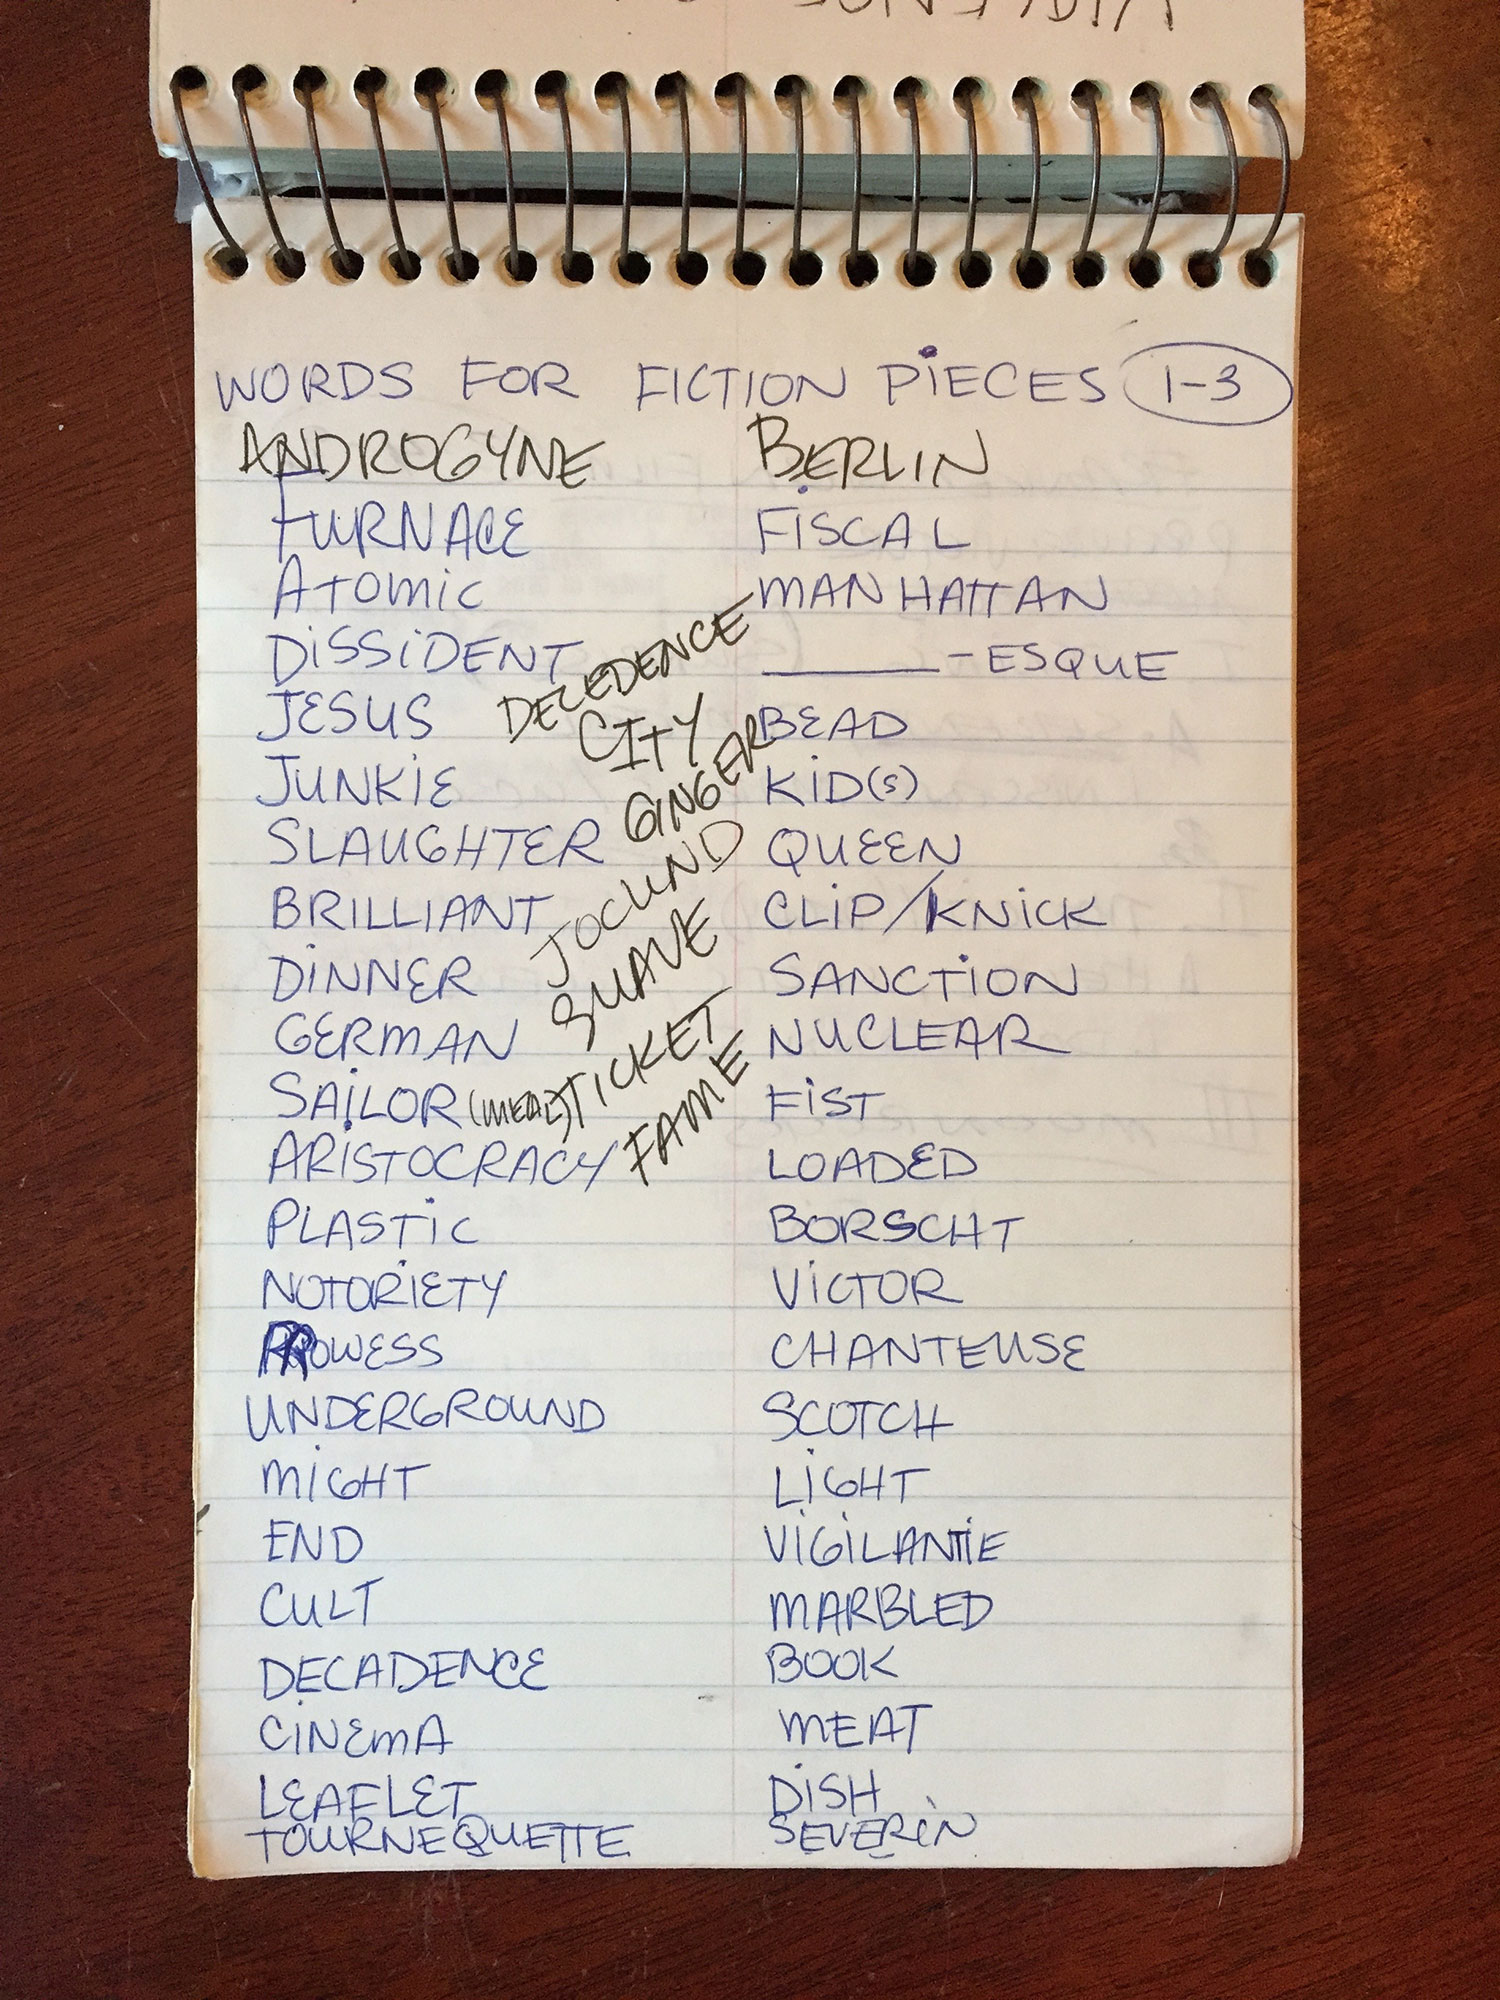 WORDS FOR FICTION PIECES 1-3
ANDROGYNE
FURNACE
ATOMIC
DISSIDENT
JESUS
JUNKIE
SLAUGHTER
BRILLIANT
DINNER
GERMAN
SAILOR
ARISTOCRACY
PLASTIC
NOTORIETY
PROWESS
UNDERGROUND
MIGHT
END
CULT
DECADENCE
CINEMA
LEAFLET
TOURNEQUETTE
DECEDENCE
CITY
GINGER
JOCUND
SUAVE
(MEAL) TICKET
FAME
BERLIN
FISCAL
MANHATTAN
______-ESQUE
BEAD
KID(S)
QUEEN
CLIP/KNICK
SANCTION
NUCLEAR
FIST
LOADED
BORSCHT
VICTOR
CHANTEUSE
SCOTCH
LIGHT
VIGILANTIE
MARBLED
BOOK
MEAT
DISH
SEVERIN